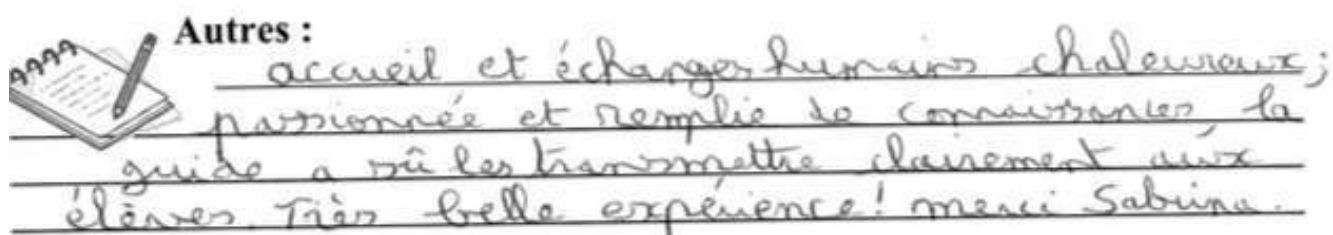 Autres :
accueil et échanges humains chaleureux ;
passionnée et remplie de connaissances la
guide a sû les transmettre clairement aux
élèves. Très belle expérience ! merci Sabrina.